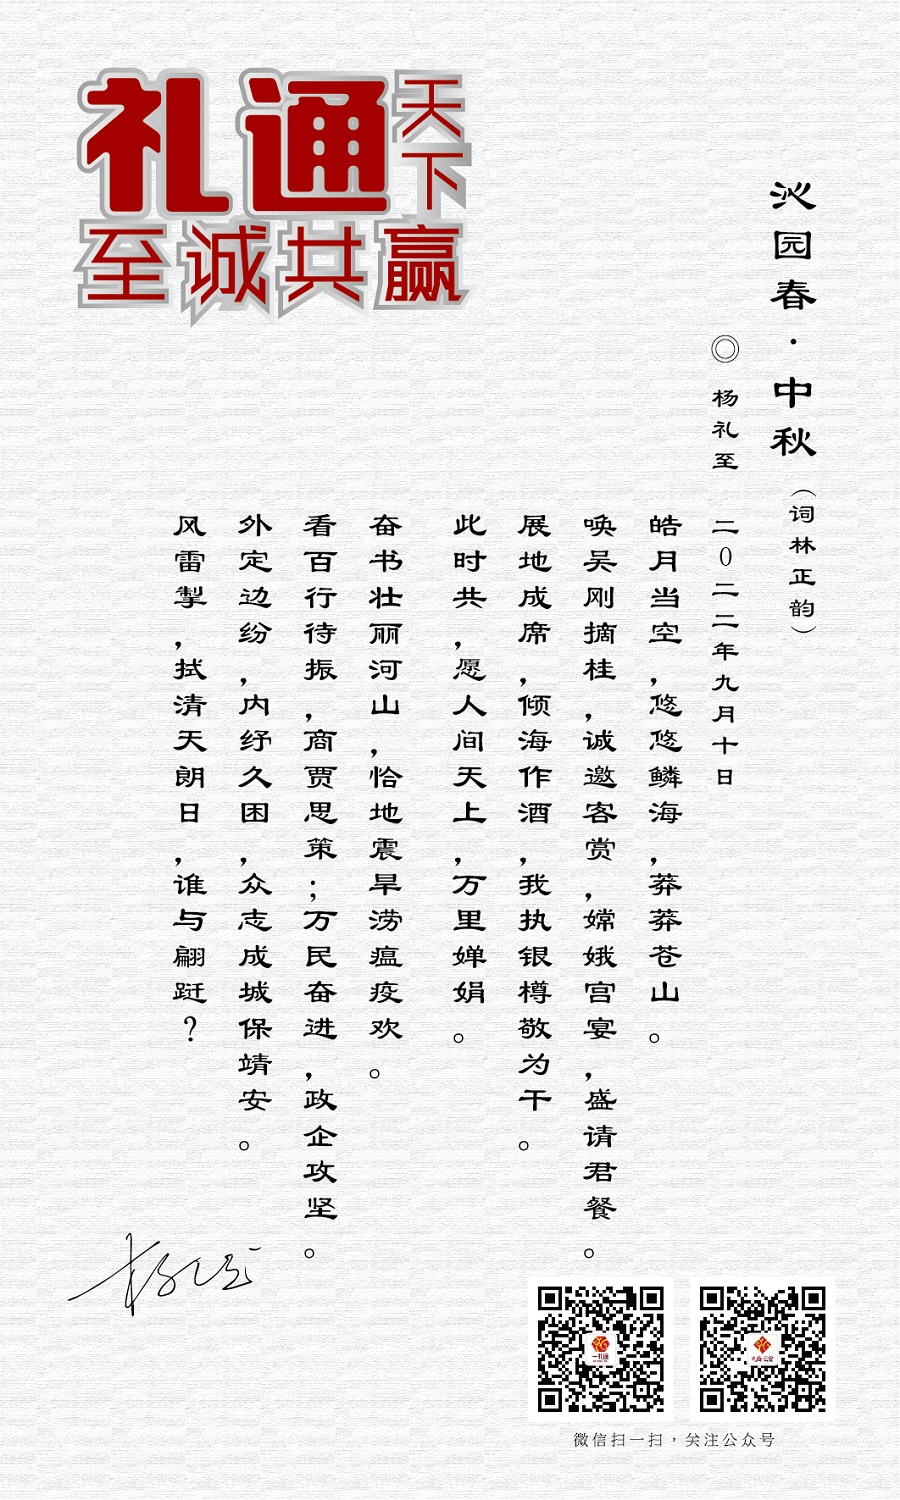 礼通天下
至诚共赢
沁园春·中秋
（词林正韵）
◎ 杨礼至 二0二二年九月十日
皓月当空，悠悠鳞海，莽莽苍山。
唤吴刚摘桂，诚邀客赏，嫦娥宫宴，盛请君餐。
展地成席，倾海作酒，我执银樽敬为干。
此时共，愿人间天上，万里婵娟。
奋书壮丽河山，恰地震旱涝瘟疫欢。
看百行待振，商贾思策；万民奋进，政企攻坚。
外定边纷，内纾久困，众志成城保靖安。
风雷掣，拭清天朗日，谁与翩跹？
杨礼至
微信扫一扫，关注公众号